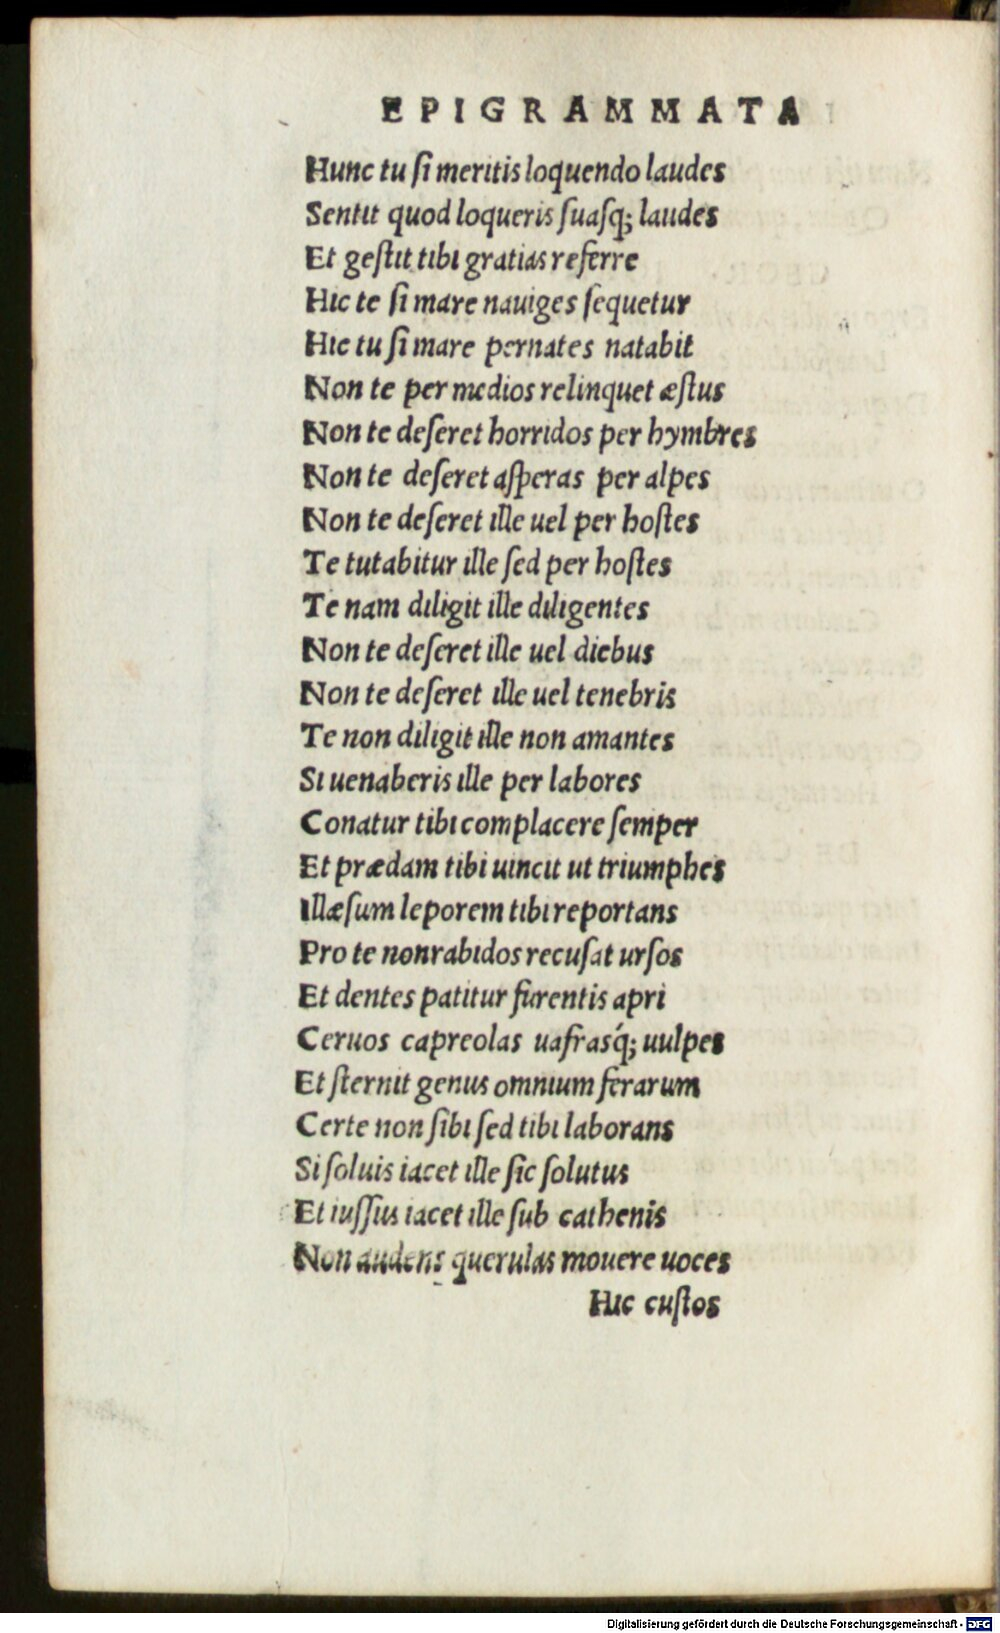 EPIGRAMMATA
Hunc tu ſi meritis loquendo laudes
Sentit quod loqueris ſuaſq; laudes
Et geſtit tibi gratias referre
Hic te ſi mare nauiges ſequetur
Hic tu ſi mare pernates natabit
Non te per medios relinquet æſtus
Non te deſeret horridos per hymbres
Non te deſeret aſperas per alpes
Non te deſeret ille uel per hoſtes
Te tutabitur ille ſed per hoſtes
Te nam diligit ille diligentes
Non te deſeret ille uel diebus
Non te deſeret ille uel tenebris
Te non diligit ille non amantes
Si uenaberis ille per labores
Conatur tibi complacere ſemper
Et prædam tibi uincit ut triumphes
Illæſum leporem tibi reportans
Pro te non rabidos recuſat urſos
Et dentes patitur furentis apri
Ceruos capreolas uafrasq́; uulpes
Et ſternit genus omnium ferarum
Certe non ſibi ſed tibi laborans
Si ſoluis iacet ille ſic ſolutus
Et iuſſius iacet ille ſub cathenis
Non audens querulas mouere uoces
Hic cuſtos
Digitalisierung gefördert durch die Deutsche Forschungsgemeinschaft - DFG